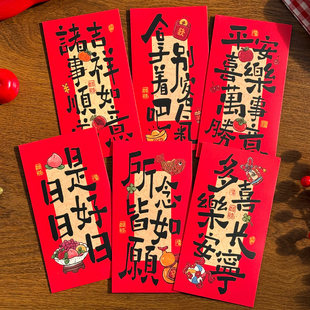 吉祥如意
諸事順
别客氣
拿着吧
平安
喜樂
萬事
勝意
日日
是好日
所念
皆如願
多喜
樂长
安寧